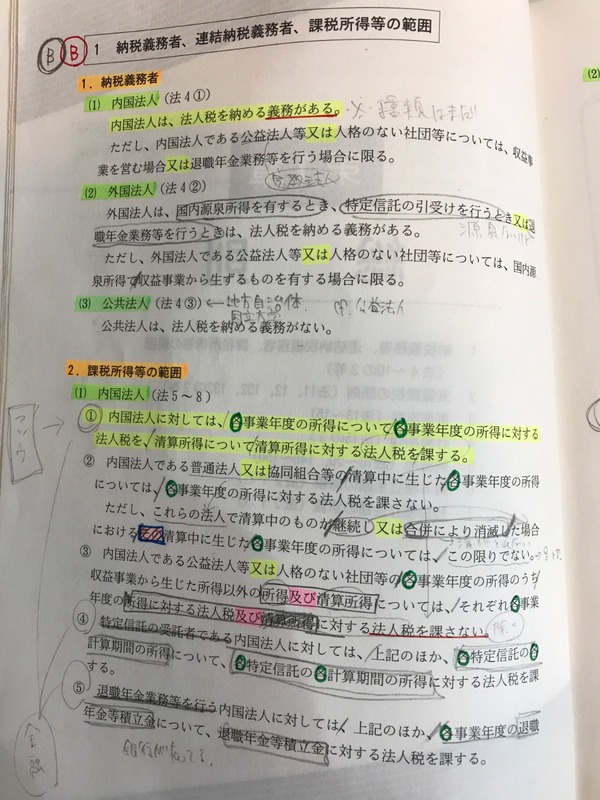 B B 1 納税義務者、連結納税義務者、課税所得等の範囲
1．納税義務者
(1) 内国法人（法4①）
内国法人は、法人税を納める義務がある。
ただし、内国法人である公益法人等又は人格のない社団等については、収益事
業を営む場合又は退職年金業務等を行う場合に限る。
(2) 外国法人（法4②）
外国法人は、国内源泉所得を有するとき、特定信託の引受けを行うとき又は退
職年金業務等を行うときは、法人税を納める義務がある。
ただし、外国法人である公益法人等又は人格のない社団等については、国内源
泉所得で収益事業から生ずるものを有する場合に限る。
(3) 公共法人（法4③）←地方自治体
国立大学
公共法人は、法人税を納める義務がない。
2．課税所得等の範囲
(1) 内国法人（法5～8）
① 内国法人に対しては、各事業年度の所得について各事業年度の所得に対する
法人税を、清算所得について清算所得に対する法人税を課する。
② 内国法人である普通法人又は協同組合等の清算中に生じた各事業年度の所得
については、各事業年度の所得に対する法人税を課さない。
ただし、これらの法人で清算中のものが継続し又は合併により消滅した場合
における清算中に生じた各事業年度の所得については、この限りでない。
③ 内国法人である公益法人等又は人格のない社団等の各事業年度の所得のうち
収益事業から生じた所得以外の所得及び清算所得については、それぞれ各事業
年度の所得に対する法人税及び清算所得に対する法人税を課さない。
除く
④ 特定信託の受託者である内国法人に対しては、上記のほか、各特定信託の各
計算期間の所得について、各特定信託の各計算期間の所得に対する法人税を課
する。
⑤ 退職年金業務等を行う内国法人に対しては、上記のほか、各事業年度の退職
年金等積立金について、退職年金等積立金に対する法人税を課する。